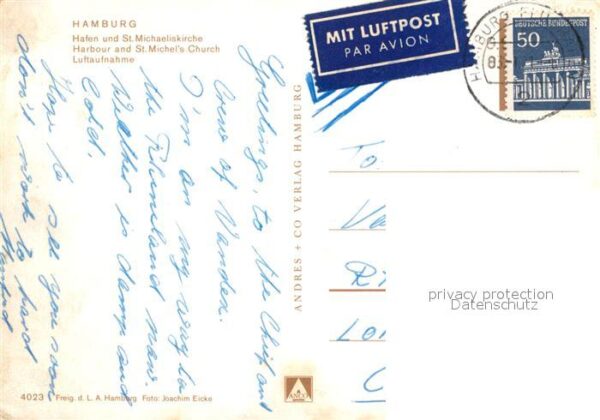 HAMBURG
Hafen und St. Michaeliskirche
Harbour and St. Michel's Church
Luftaufnahme
MIT LUFTPOST
PAR AVION
HAMBURG
DEUTSCHE BUNDESPOST
50
Greetings, to the Chief and
Crew of Vandex.
I'm on my way to
the
now.
Weather is damp and
Cold.
Hope to see you soon
don't work to hard
ANDRES + CO VERLAG HAMBURG
To
Va
Ri
Lon
privacy protection
Datenschutz
4023 Freig. d. L. A. Hamburg Foto: Joachim Eicke